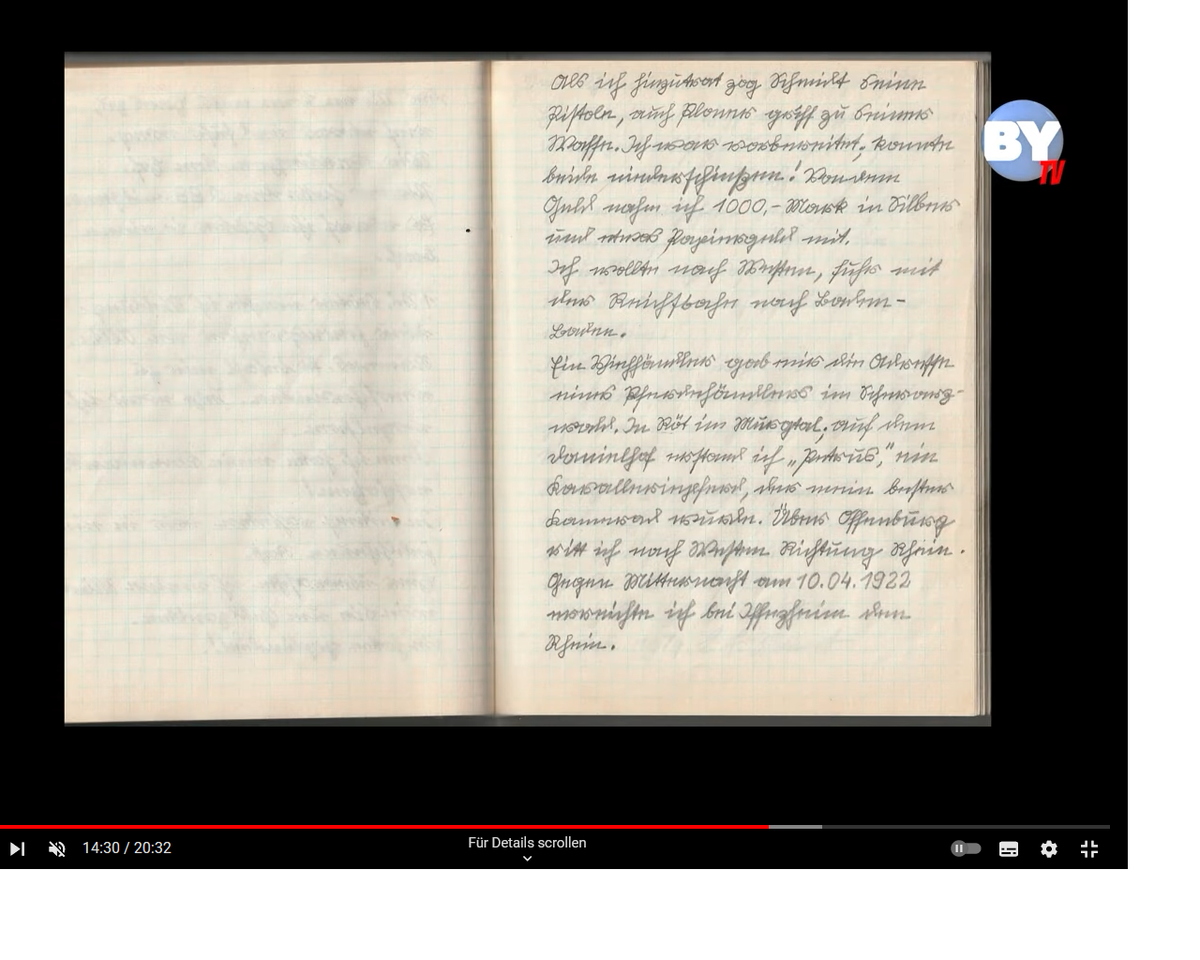 Als ich hinzutrat zog Schmidt seine
Pistole, auch Plomer griff zu seiner
Waffe. Ich war vorbereitet, konnte
beide niederschießen! Von dem
Geld nahm ich 1000,- Mark in Silber
und etwas Papiergeld mit.
Ich wollte nach Westen, fuhr mit
der Reichsbahn nach Baden-
Baden.
Ein Viehhändler gab mir die Adresse
eines Pferdehändlers im Schwarz-
wald. In Röt im Murgtal, auf dem
Danielhof erstand ich „Petrus", ein
Kavalleriepferd, der mein bester
Kamerad wurde. Über Offenburg
ritt ich nach Westen Richtung Rhein.
Gegen Mitternacht am 10.04.1922
erreichte ich bei Iffezheim den
Rhein.
BY
TV
Für Details scrollen
14:30 / 20:32